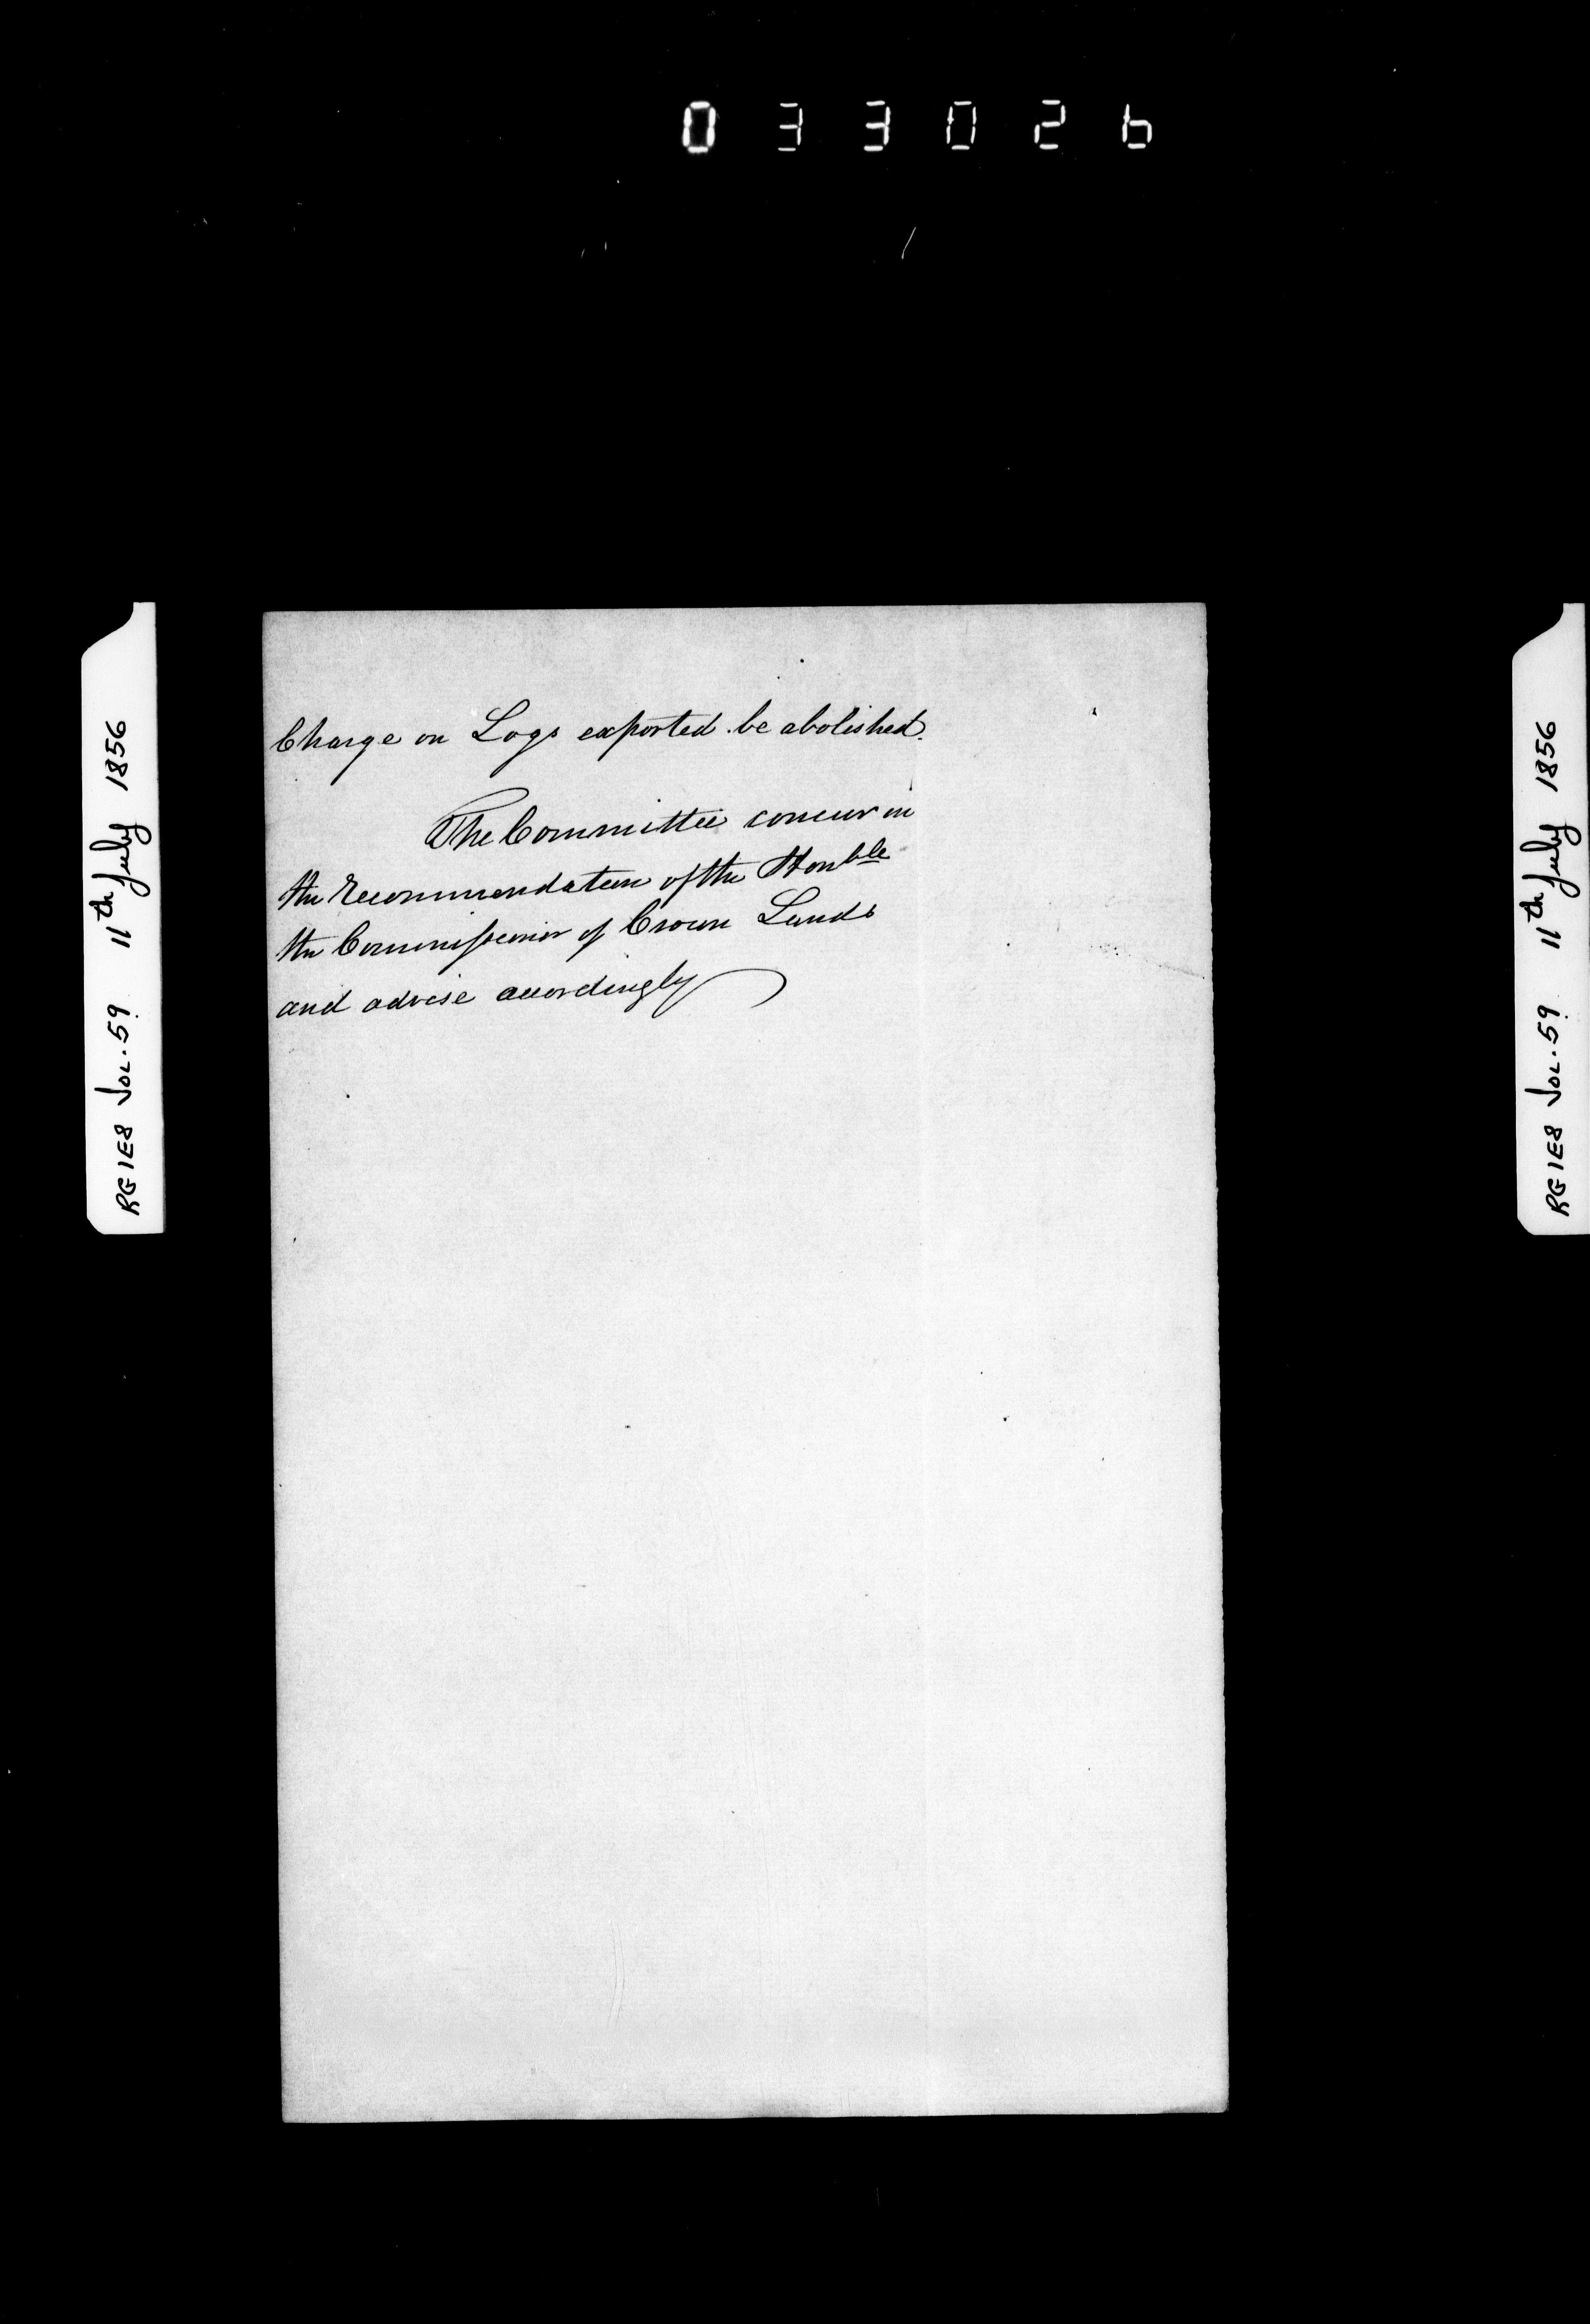 033026
Charge on Logs exported be abolished.
The Committee concur in
the recommendation of the Honble
the Commissioner of Crown Lands
and advise accordingly
RG1E8 VOL.59 11th July 1856
RG1E8 VOL.59 11th July 1856